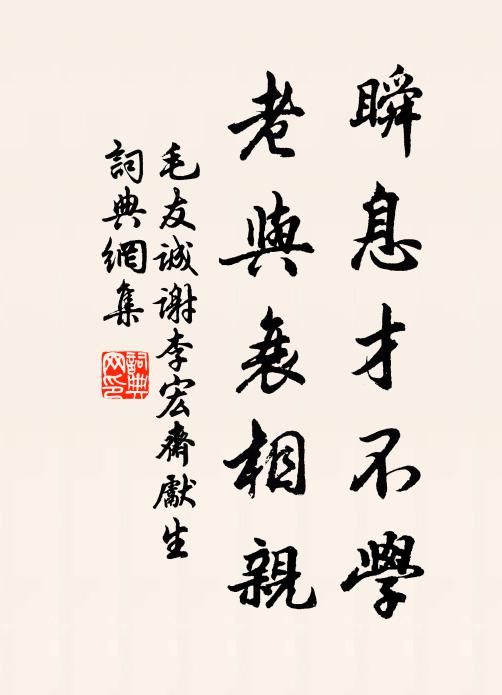 瞬息才不學
老與衰相親
毛友誠謝李宏齋獻生
詞典網集
詞典網印